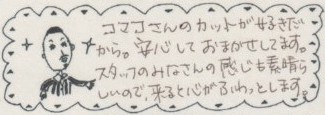 コマコさんのカットが好きだ
から。安心しておまかせしてます。
スタッフのみなさんの感じも素晴ら
しいので、来ると心がふわっとします。